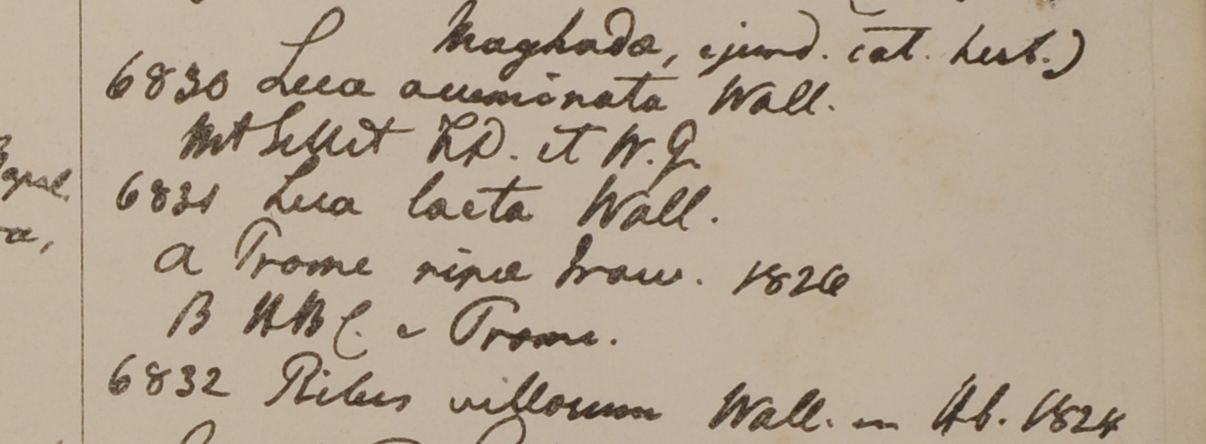 Maghada, ejusd. cat. herb.)
6830 Leea acuminata Wall.
Mt Sillet F.D. et W.G.
6831 Leea laeta Wall.
a Prome ripae Iraw. 1826
B HBC. e Prome.
6832 Ribes villosum Wall. in Hb. 1824